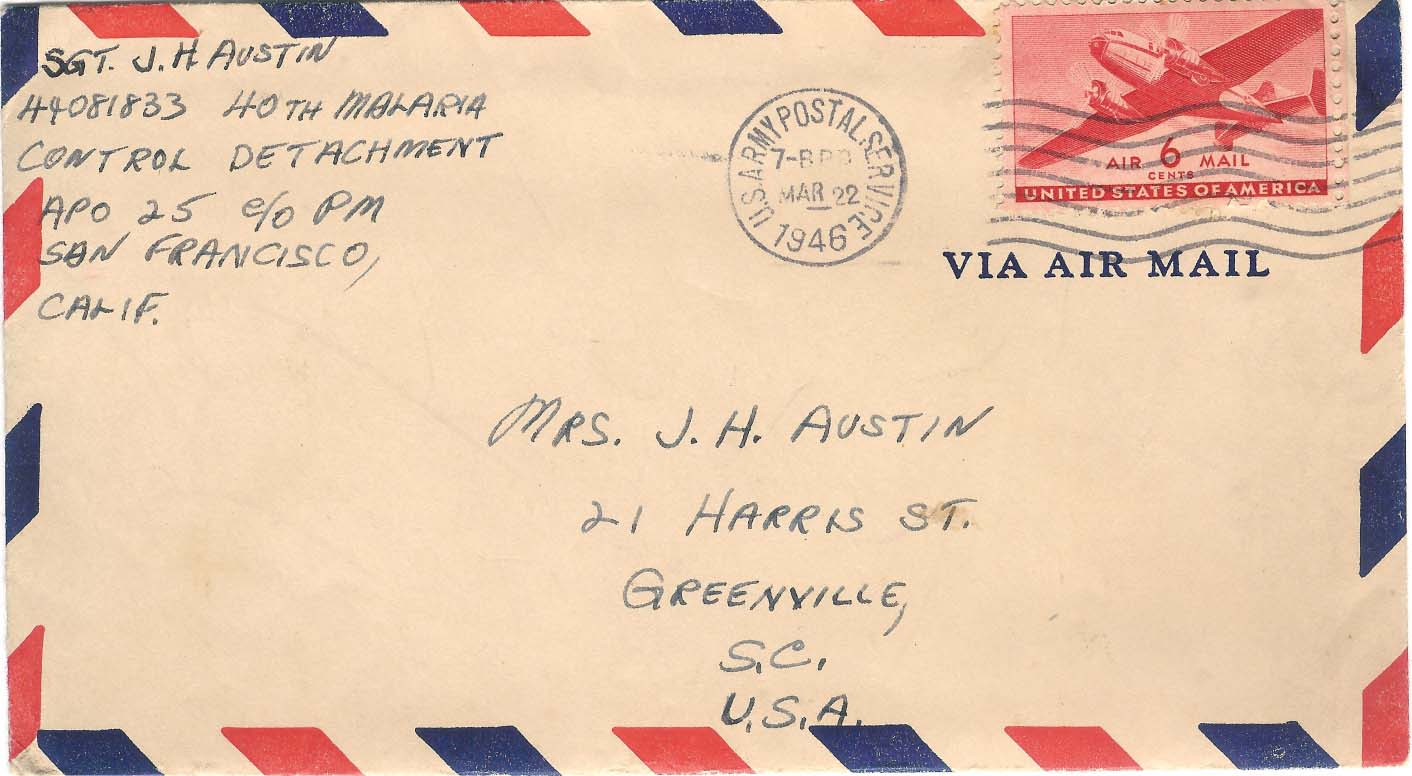 SGT. J. H AUSTIN
44081833 40TH MALARIA
CONTROL DETACHMENT
APO 25 c/o PM
SAN FRANCISCO,
CALIF.
U.S. ARMY POSTAL SERVICE
MAR 22
1946
AIR 6 MAIL
CENTS
UNITED STATES OF AMERICA
VIA AIR MAIL
MRS. J. H. AUSTIN
21 HARRIS ST.
GREENVILLE,
S.C.
U.S.A.